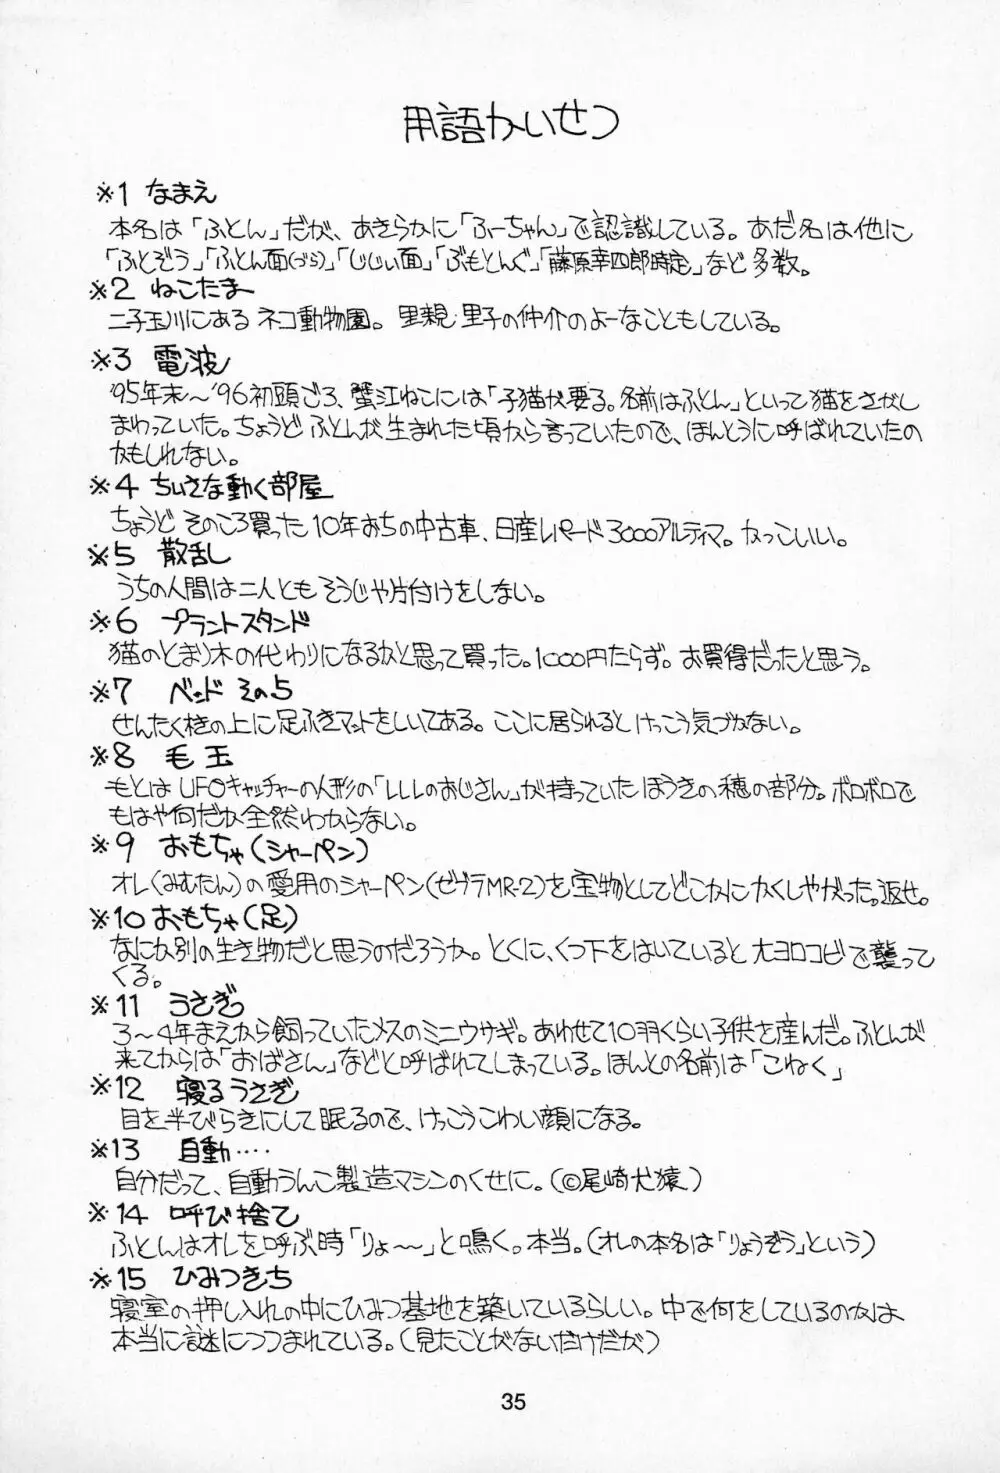 用語かいせつ
※1 なまえ
本名は「ふとん」だが、あきらかに「ふーちゃん」で認識している。あだ名は他に
「ふとぞう」「ふとん面(づら)」「じじい面」「ぶもとんぐ」「藤原幸四郎時定」など多数。
※2 ねこたま
二子玉川にあるネコ動物園。里親・里子の仲介のよーなこともしている。
※3 電波
'95年末〜'96初頭ごろ、蟹江ねこには「子猫が要る。名前はふとん」といって猫をさがし
まわっていた。ちょうどふとんが生まれた頃から言っていたので、ほんとうに呼ばれていたの
かもしれない。
※4 ちいさな動く部屋
ちょうどそのころ買った10年おちの中古車、日産レパード3000アルティマ。かっこいい。
※5 散乱
うちの人間は二人ともそうじや片付けをしない。
※6 プラントスタンド
猫のとまり木の代わりになるかと思って買った。1000円たらず。お買得だったと思う。
※7 ベッド その5
せんたく機の上に足ふきマットをしいてある。ここに居られるとけっこう気づかない。
※8 毛玉
もとはUFOキャッチャーの人形の「レレレのおじさん」が持っていたほうきの穂の部分。ボロボロで
もはや何だか全然わからない。
※9 おもちゃ(シャーペン)
オレ(みむたん)の愛用のシャーペン(ゼブラMR-2)を宝物としてどこかにかくしやがった。返せ。
※10 おもちゃ(足)
なにか別の生き物だと思うのだろうか。とくに、くつ下をはいていると大ヨロコビで襲って
くる。
※11 うさぎっ
3〜4年まえから飼っていたメスのミニウサギ。あわせて10羽くらい子供を産んだ。ふとんが
来てからは「おばさん」などと呼ばれてしまっている。ほんとの名前は「こねく」
※12 寝るうさぎ
目を半びらきにして眠るので、けっこうこわい顔になる。
※13 自動‥‥
自分だって、自動うんこ製造マシンのくせに。(©尾崎犬猿)
※14 呼び捨て
ふとんはオレを呼ぶ時「りょ〜〜」と鳴く。本当。(オレの本名は「りょうぞう」という)
※15 ひみつきち
寝室の押し入れの中にひみつ基地を築いているらしい。中で何をしているのかは
本当に謎につつまれている。(見たことがないだけだが)
35